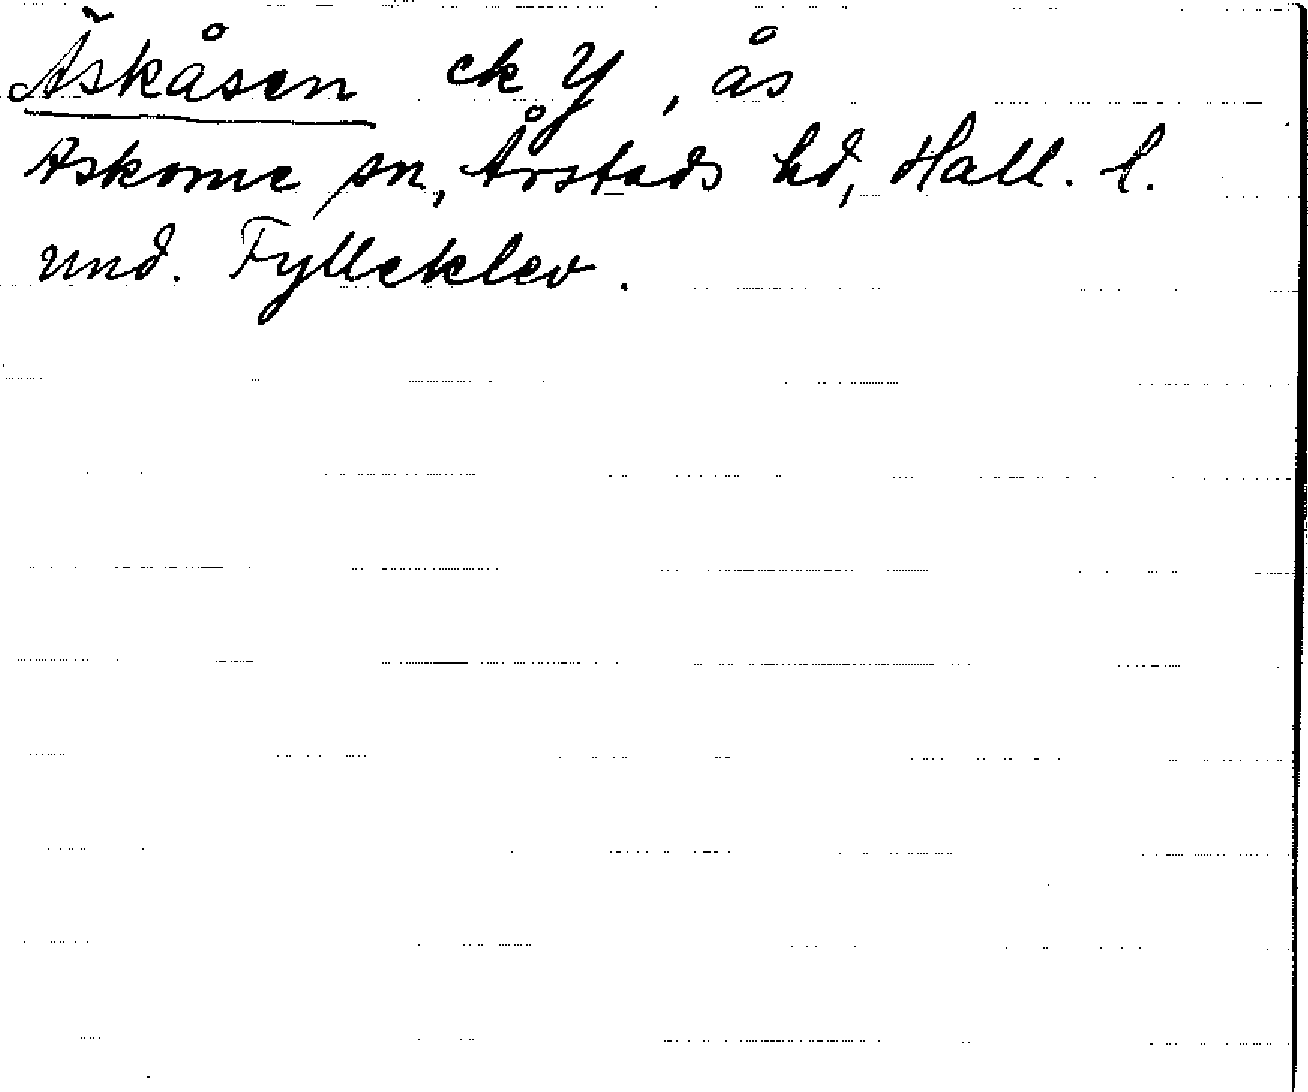 Äskåsen ek Y, ås
Askome sn, Årstads hd, Hall. l.
und. Fylleklev.